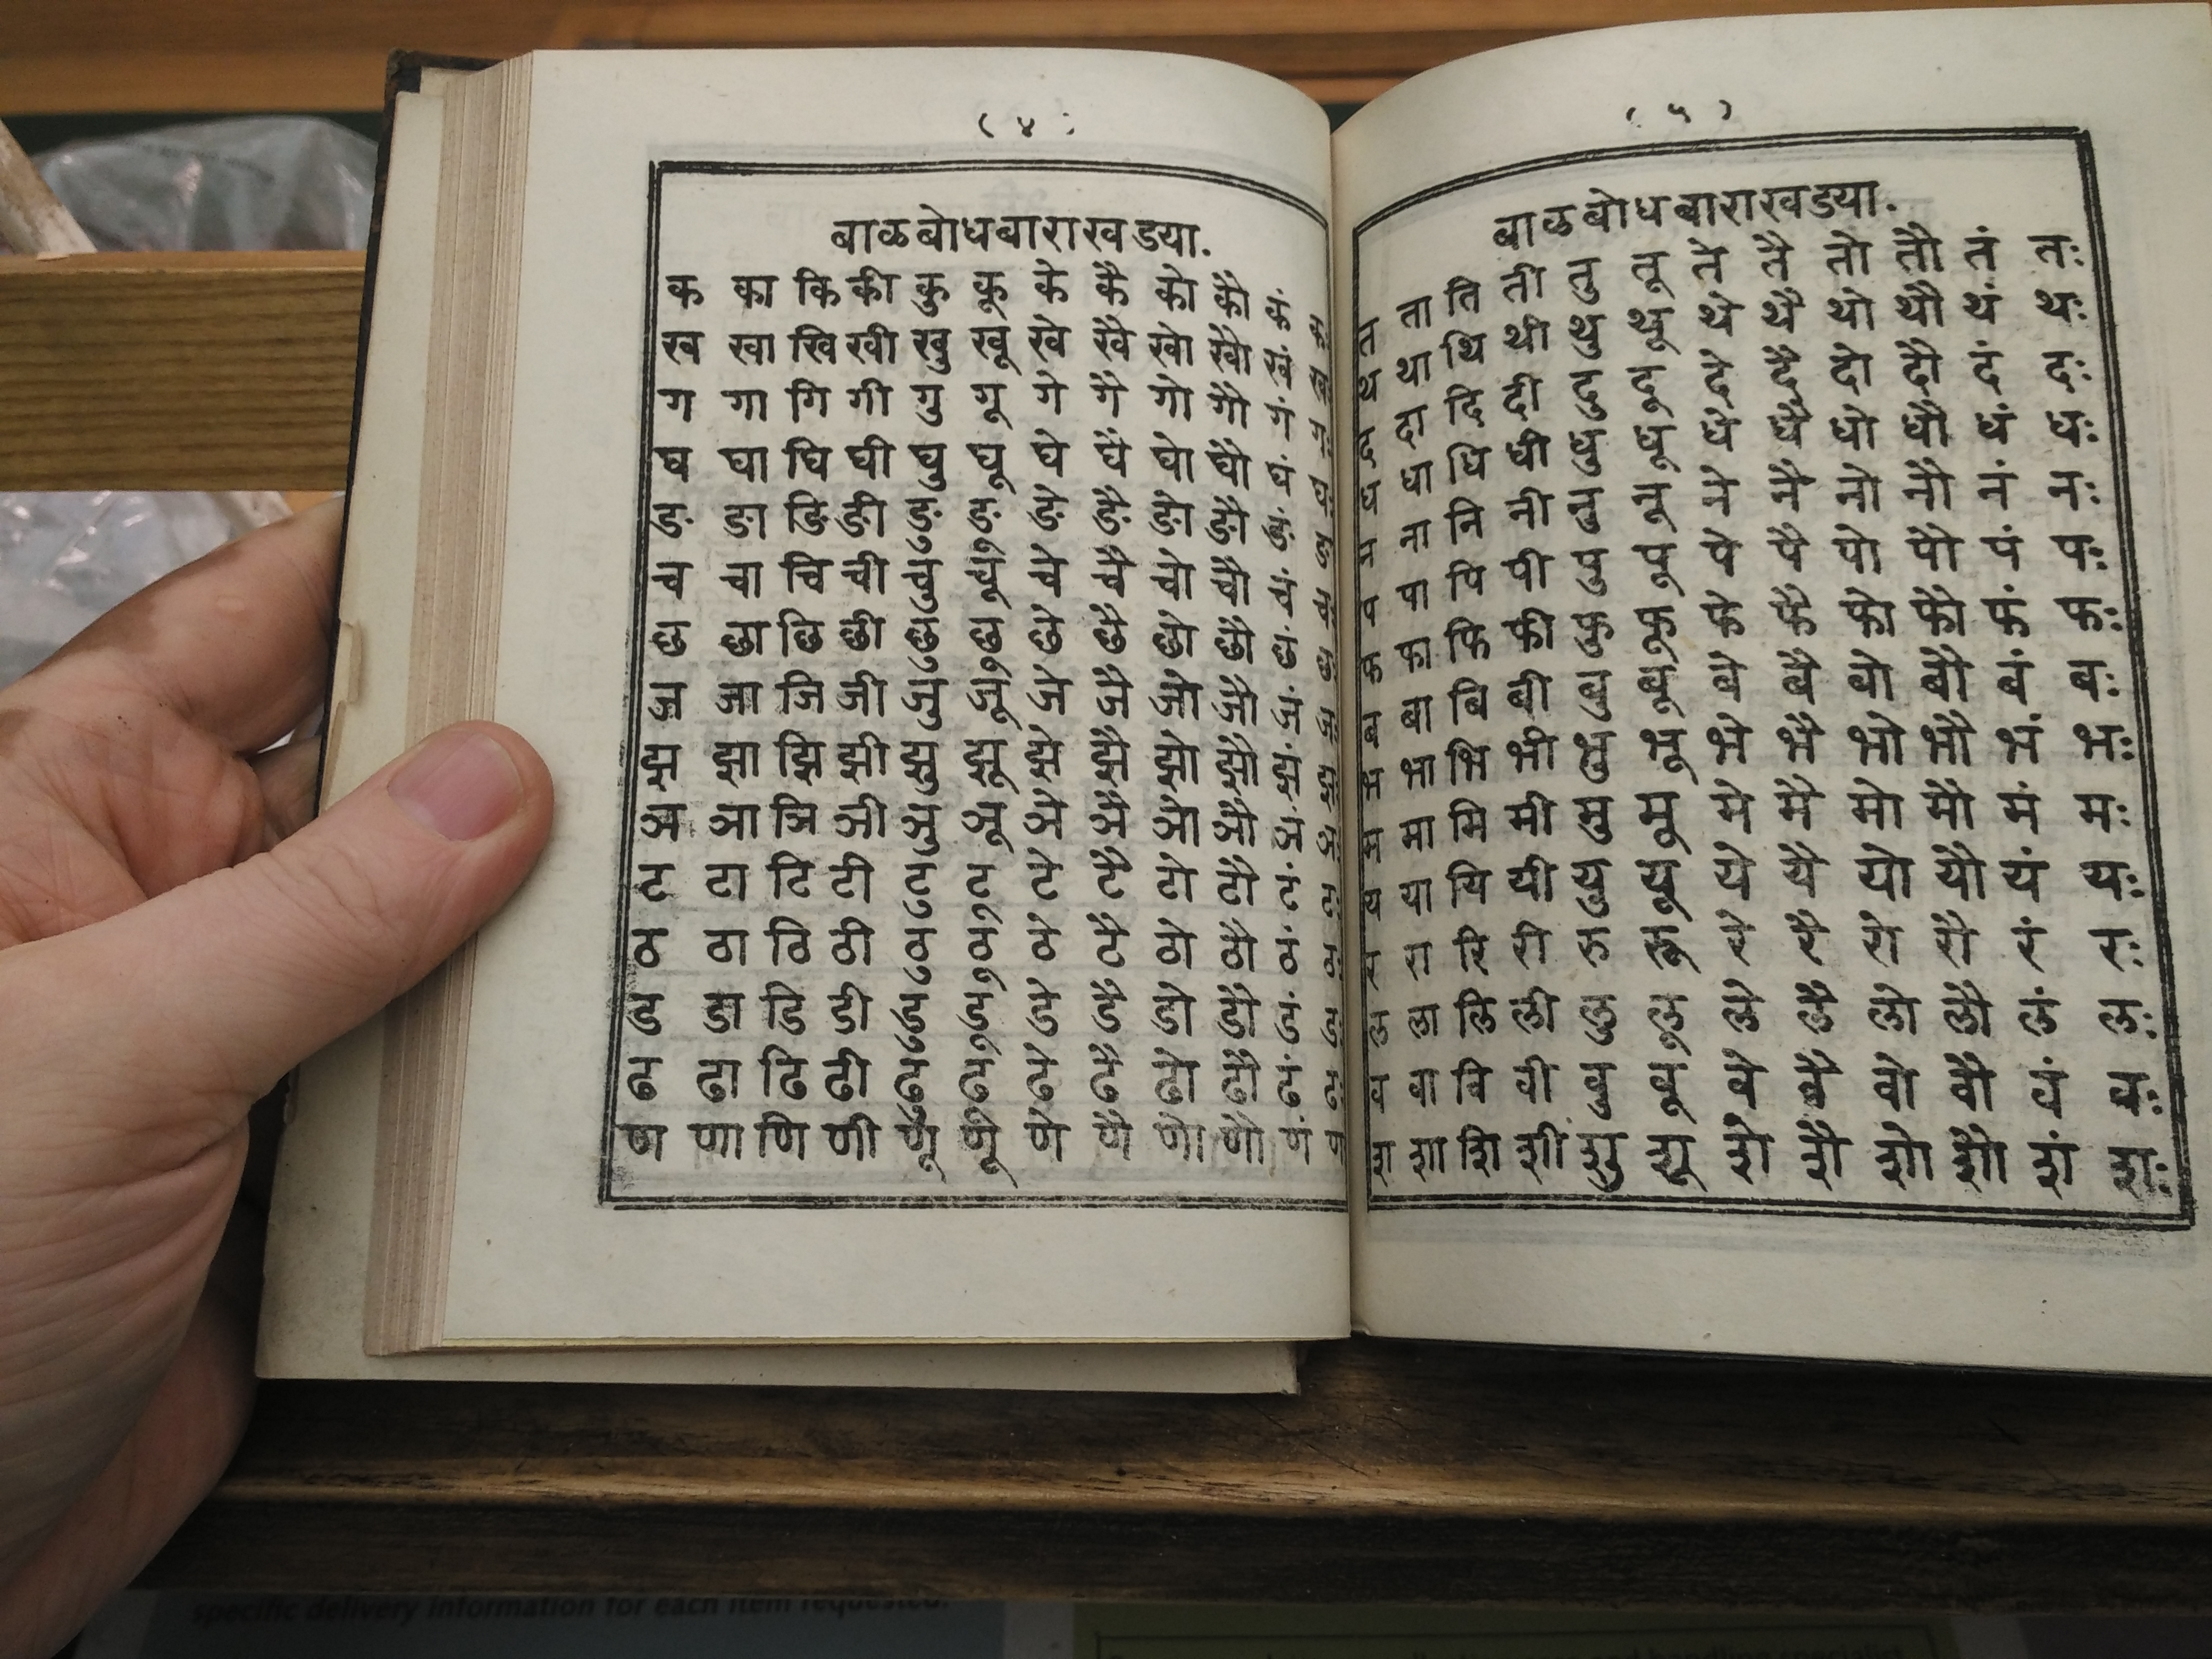 ( ४ )
बाळबोधबाराखडया.
क का कि की कु कू के कै को कौ कं
ख खा खि खी खु खू खे खै खो खौ खं
ग गा गि गी गु गू गे गै गो गौ गं गः
घ घा घि घी घु घू घे घै घो घौ घं घः
ङ ङा ङि ङी ङु ङू ङे ङै ङो ङौ ङं
च चा चि ची चु चू चे चै चो चौ चं चः
छ छा छि छी छु छू छे छै छो छौ छं छः
ज जा जि जी जु जू जे जै जो जौ जं जः
झ झा झि झी झु झू झे झै झो झौ झं झः
ञ ञा ञि ञी ञु ञू ञे ञै ञो ञौ ञं ञः
ट टा टि टी टु टू टे टै टो टौ टं टः
ठ ठा ठि ठी ठु ठू ठे टै ठो ठौ ठं ठः
ड डा डि डी डु डू डे डै डो डौ डं डः
ढ ढा ढि ढी ढु ढू ढे ढै ढो ढौ ढं ढः
ण णा णि णी णू णू णे णै णो णौ णं
( ५ )
बाळबोधबाराखडया.
त ता ति ती तु तू ते तै तो तौ तं तः
थ था थि थी थु थू थे थै थो थौ थं थः
द दा दि दी दु दू दे दै दो दौ दं दः
ध धा धि धी धु धू धे धै धो धौ धं धः
न ना नि नी नु नू ने नै नो नौ नं नः
प पा पि पी पु पू पे पै पो पौ पं पः
फ फा फि फी फु फू फे फै फो फौ फं फः
ब बा बि बी बु बू बे बै बो बौ बं बः
भ भा भि भी भु भू भे भै भो भौ भं भः
म मा मि मी मु मू मे मै मो मौ मं मः
य या यि यी यु यू ये यै यो यौ यं यः
र रा रि री रु रू रे रै रो रौ रं रः
ल ला लि ली लु लू ले लै लो लौ लं लः
व वा वि वी वु वू वे वै वो वौ वं वः
श शा शि शी शु शू शे शै शो शौ शं शः
specific delivery information for each item requested.